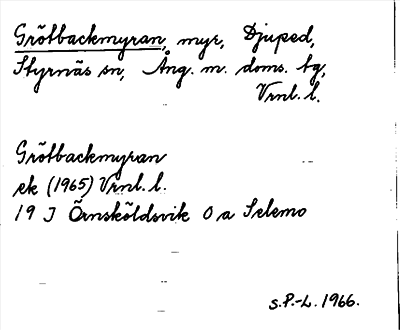 Grötbackmyran, myr, Djuped,
Styrnäs sn, Ång. m. doms. tg,
Vrnl. l.
Grötbackmyran
ek (1965) Vrnl. l.
19 J Örnsköldsvik 0 a Selemo
S.P.-L. 1966.